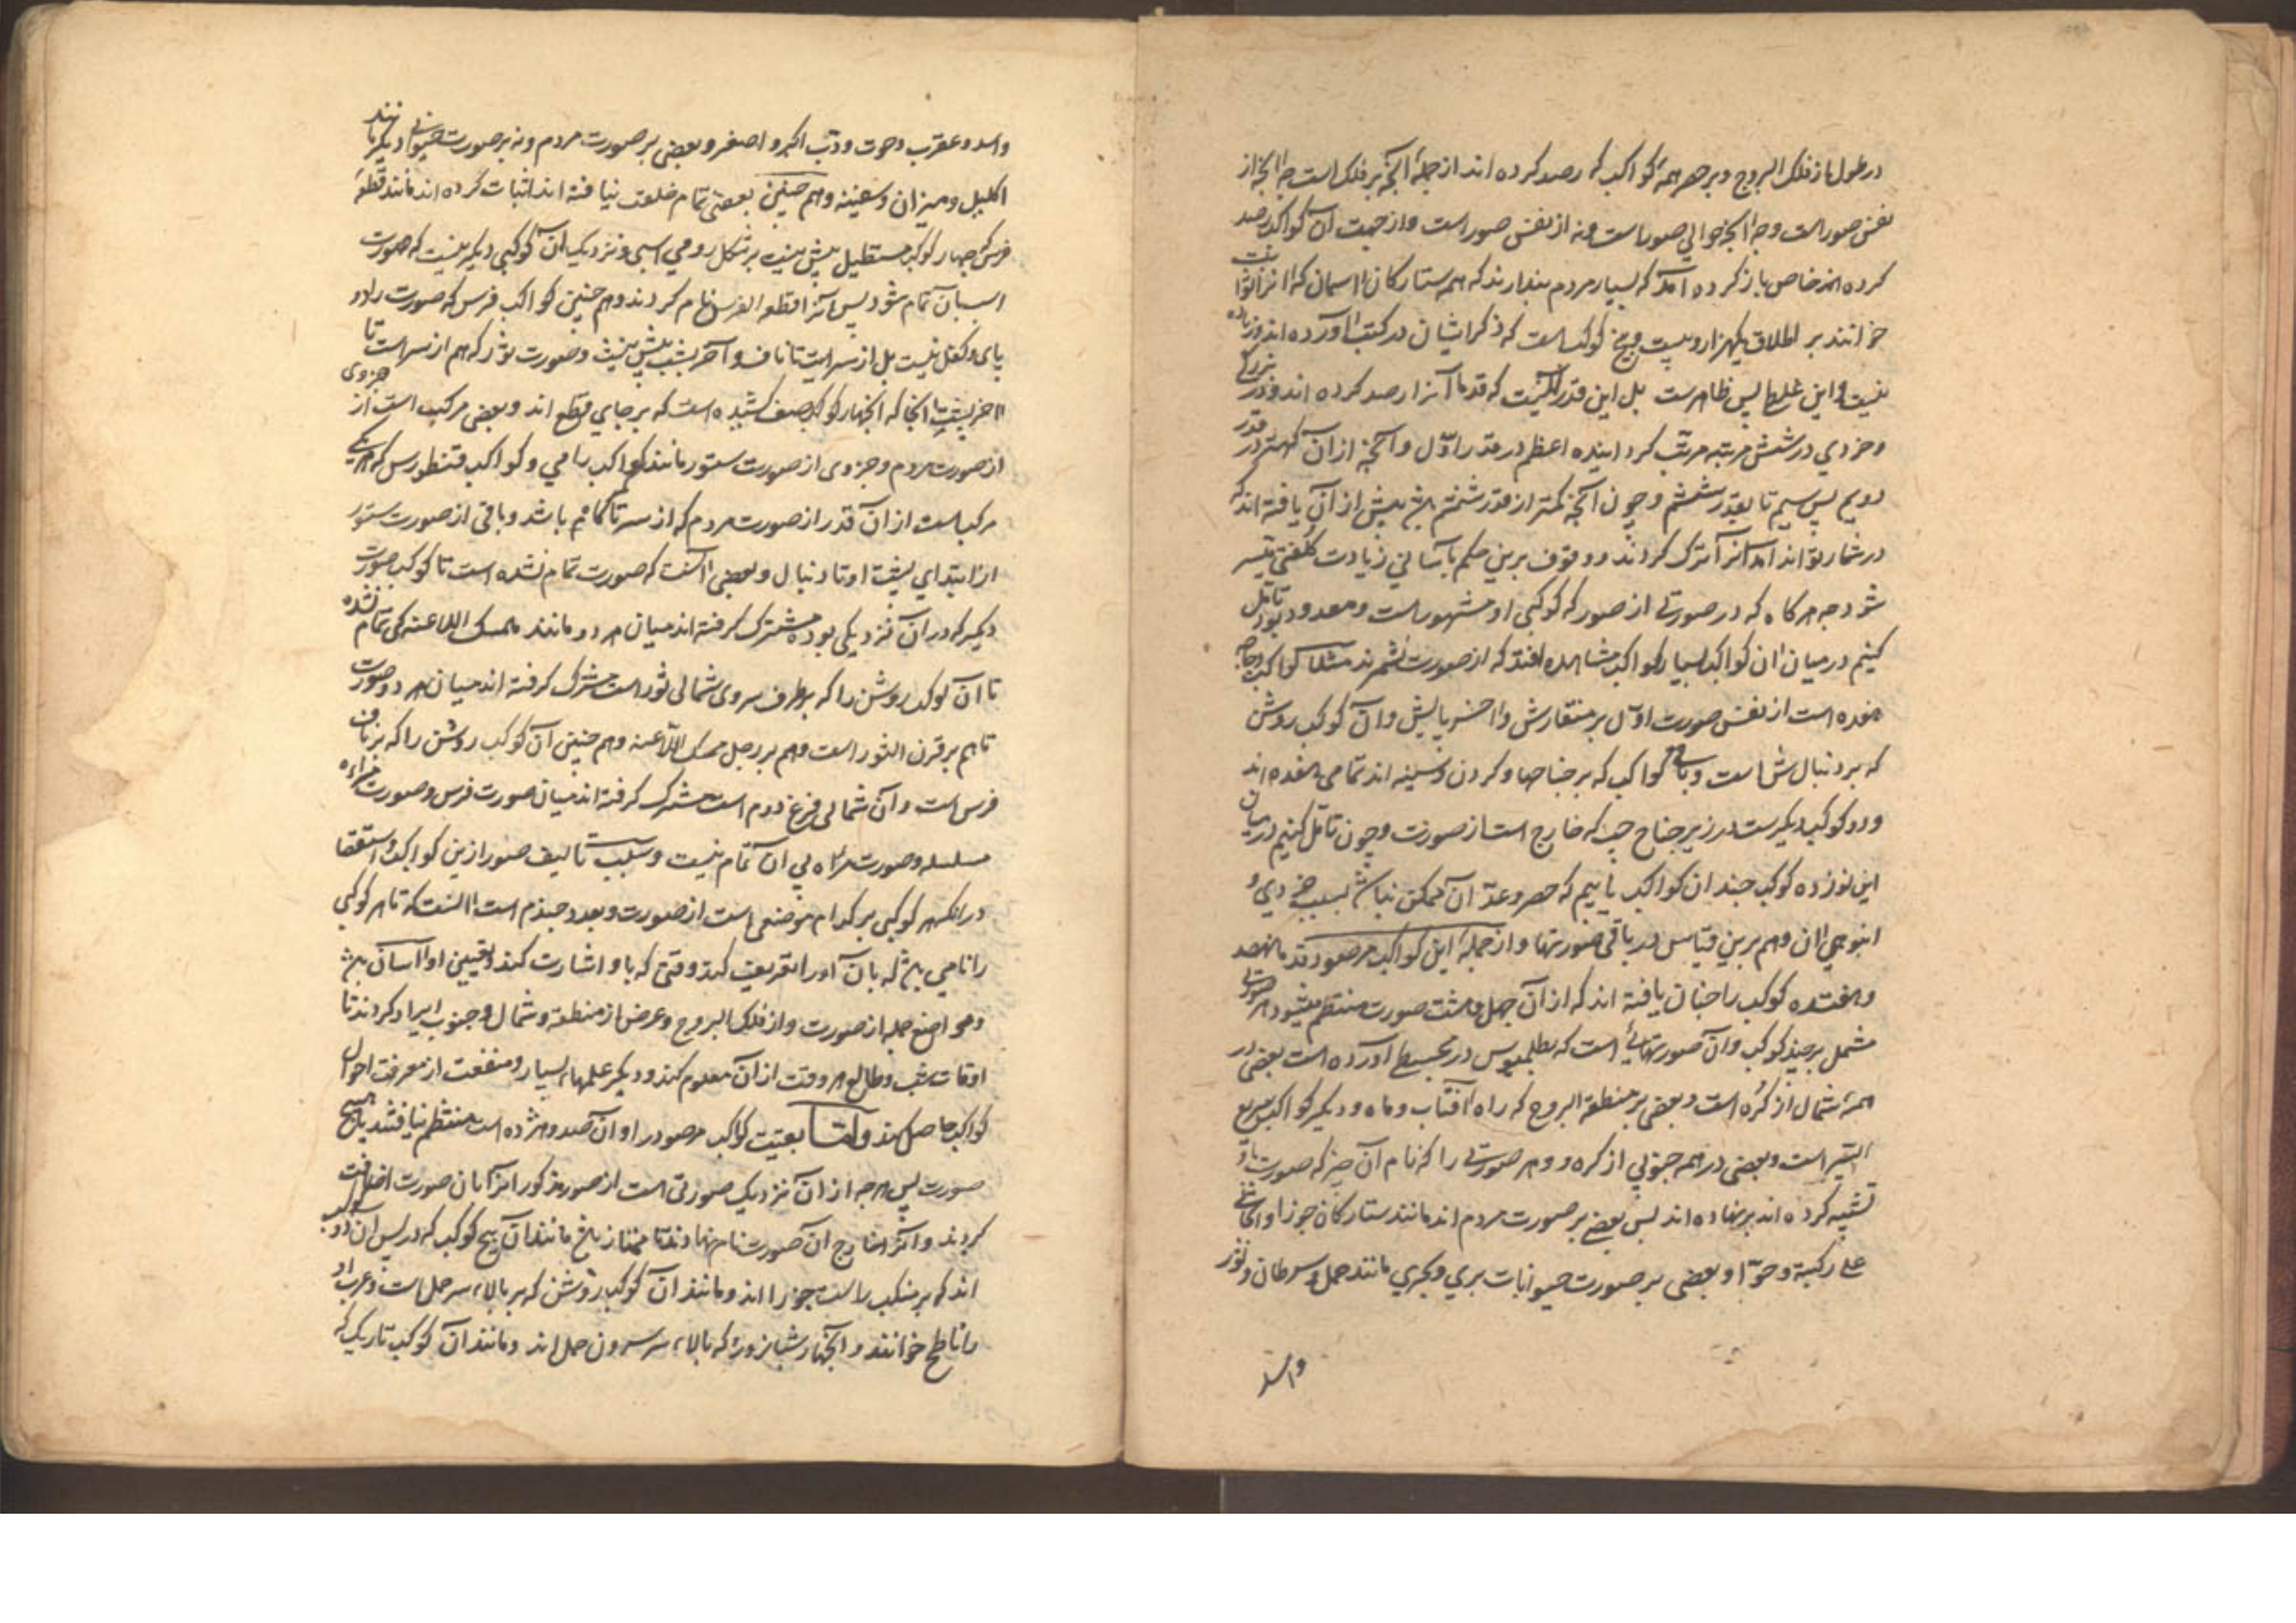 در طول از فلک البروج و بر هر همهٔ کواکب که رصد کرده اند از جملهٔ آنچه بر فلک است چه آنچه از
نفس صور است و چه آنچه حوالی صور است و نه از نفس صور است و از جهت آن کواکب رصد
کرده اند خاص باز کرده آمد که بسیار مردم پندارند که همه ستارگان آسمان که آنرا ثوابت
خوانند بر اطلاق یکهزار و بیست و پنج کوکب است که ذکر ایشان در کتب آورده اند و زیاده
نیست و این غلطی بس ظاهرست بل این قدر آنست که قدما آنرا رصد کرده اند و در بزرگی
و خردی در شش مرتبه مرتب گردانیده اعظم در قدر اوّل و آنچه از آن کهتر در قدر
دویم پس سیم تا بقدر ششم و چون آنچه کمتر از قدر ششم باشد بیش از آن یافته اند که
در شمار تواند آمد آنرا ترک کردند و وقوف برین حکم بآسانی زیادت کلفتی میسر
شود چه هرگاه که در صورتی از صور که کوکبی او مشهورست و معدود بود تأمل
کنیم در میان آن کواکب بسیار کواکب مشاهده افتد که از صورت نشمرند مثلا کواکب دجاجه
هفده است از نفس صورت اوّل بر منقارش و آخر بر پایش و آن کوکب روشن
که بر دنبالش است و باقی کواکب که بر جناحها و گردن و سینه اند تمامی هفده اند
و دو کوکب دیگرست در زیر جناح چپ که خارج است از صورت و چون تأمل کنیم در میان
این نوزده کوکب چندان کواکب یابیم که حصر و عدّ آن ممکن نباشد بسبب خردی و
انبوهی آن و هم برین قیاس در باقی صورتها و از جملهٔ این کواکب مرصود قدما نهصد
و هفتده کوکب را چنان یافته اند که از آن چهل و هشت صورت منتظم میشود هر صورتی
مشتمل بر چند کوکب و آن صورتهائی است که بطلمیوس در مجسطی آورده است بعضی در
همهٔ شمال از کُره است و بعضی بر منطقة البروج که راه آفتاب و ماه و دیگر کواکب سریع
السّیر است و بعضی در همه جنوبی از کره و هر صورتی را که نام آن چیز که صورت باو
تشبیه کرده اند بر نهاده اند پس بعضی بر صورت مردم اند مانند ستارگان جوزا و الجاثی
علی رکبتیه و حوّا و بعضی بر صورت حیوانات بری و بحری مانند حمل و سرطان و ثور
واسد
واسد و عقرب و حوت و دبّ اکبر و اصغر و بعضی بر صورت مردم و نه بر صورت حیوانی دیگر مانند
اکلیل و میزان و سفینه و هم چنین بعضی تمام خلقت نیافته اند اثبات کرده اند مانند قطعهٔ
فرس که چهار کوکب مستطیل بیش نیست بر شکل روی اسبی و نزدیک آن کوکبی دیگر نیست که صورت
اسب بآن تمام شود پس آنرا قطعه الفرس نام کردند و هم چنین کواکب فرس که صورت را دو
پای و کفل نیست بل از سر است تا ناف و آخر پشت بیش نیست و صورت ثور که هم از سر است تا
آخر پشت تا آنجا که آنچهار کوکب صف کشیده است که بر جای قطع اند و بعضی مرکب است از جزوی
از صورت مردم و جزوی از صورت ستور مانند کواکب رامی و کواکب قنطورس که هر یکی
مرکب است از آن قدر از صورت مردم که از سر تا کمرگاه باشد و باقی از صورت ستور
از ابتدای پشت او تا دنبال و بعضی آنست که صورت تمام نشده است تا کوکب صورت
دیگر که در آن نزدیکی بوده مشترک گرفته اند میان هر دو مانند ممسک العنان که تمام نشده
تا آن کوکب روشن را که بطرف سروی شمالی ثور است مشترک گرفته اند میان هر دو صورت
تا هم بر قرن الثور است و هم بر رجل ممسک العنان و هم چنین آن کوکب روشن را که بر ناف
فرس است و آن شمالی فرغ دوم است مشترک گرفته اند میان صورت فرس و صورت مرأه
مسلسله و صورت مرأه بی آن تمام نیست و سبب تالیف صور ازین کواکب و استقصا
در آنکه هر کوکبی بر کدام موضعی است از صورت و بعد و چندم است آنست که تا هر کوکبی
را نامی باشد که بآن او را تعریف کند وقتی که باو اشارت کند و تعیین او آسان باشد
و مواضع جمله از صورت و از فلک البروج و عرض از منطقه و شمال و جنوب ایراد کردند تا
اوقات شب و طالع هر وقت از آن معلوم کند و دیگر علمهای بسیار و منفعت از معرفت احوال
کواکب حاصل کند و امّا بقیت کواکب مرصود را و آن صد و هژده است منتظم نیافتند با هیچ
صورت پس هر چه از آن نزدیک صورتی است از صور مذکور آنرا بآن صورت اضافت
کردند و آنرا خارج آن صورت نام نهادند تا ممتاز باشد مانند آن پنج کوکب که در پس آن دو کوکب
اند که بر منکب راست جوزا اند و مانند آن کوکب روشن که بر بالای سر حمل است و عرب او
را ناطح خوانند و آنچهار شبانروز که بالای سر سرون حمل اند و مانند آن کوکب تاریک که